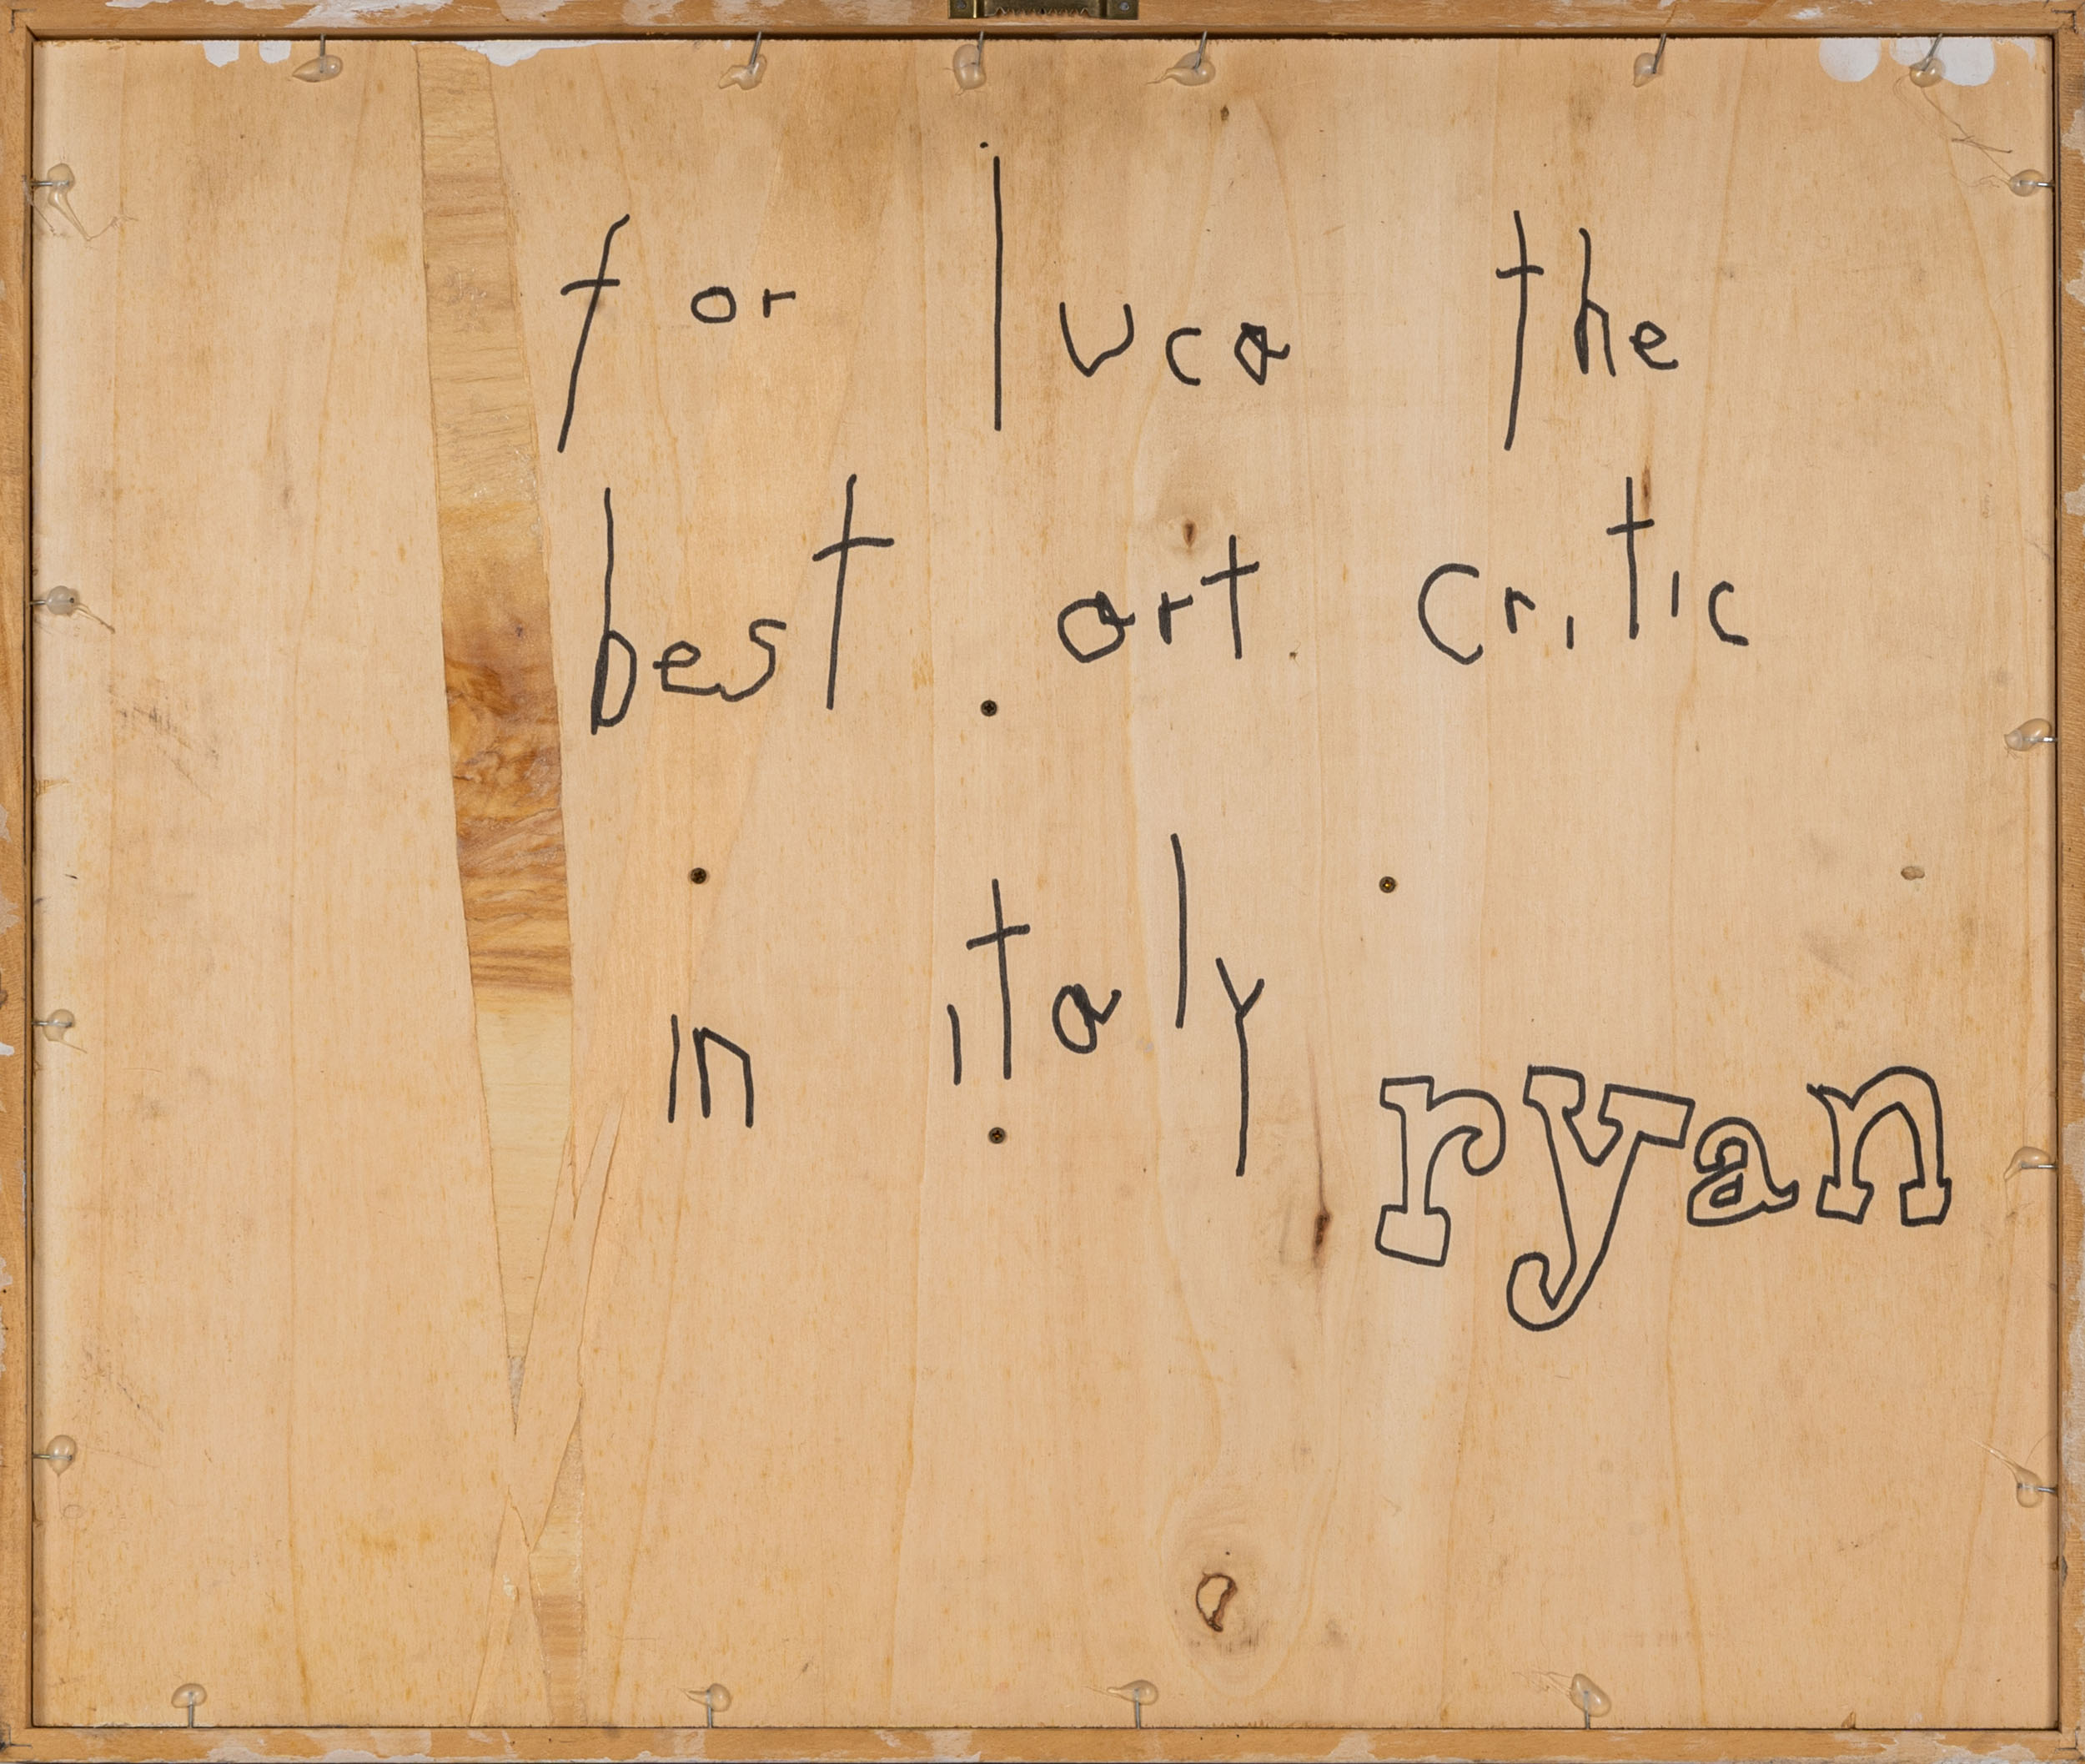 for luca the
best art critic
in italy
ryan